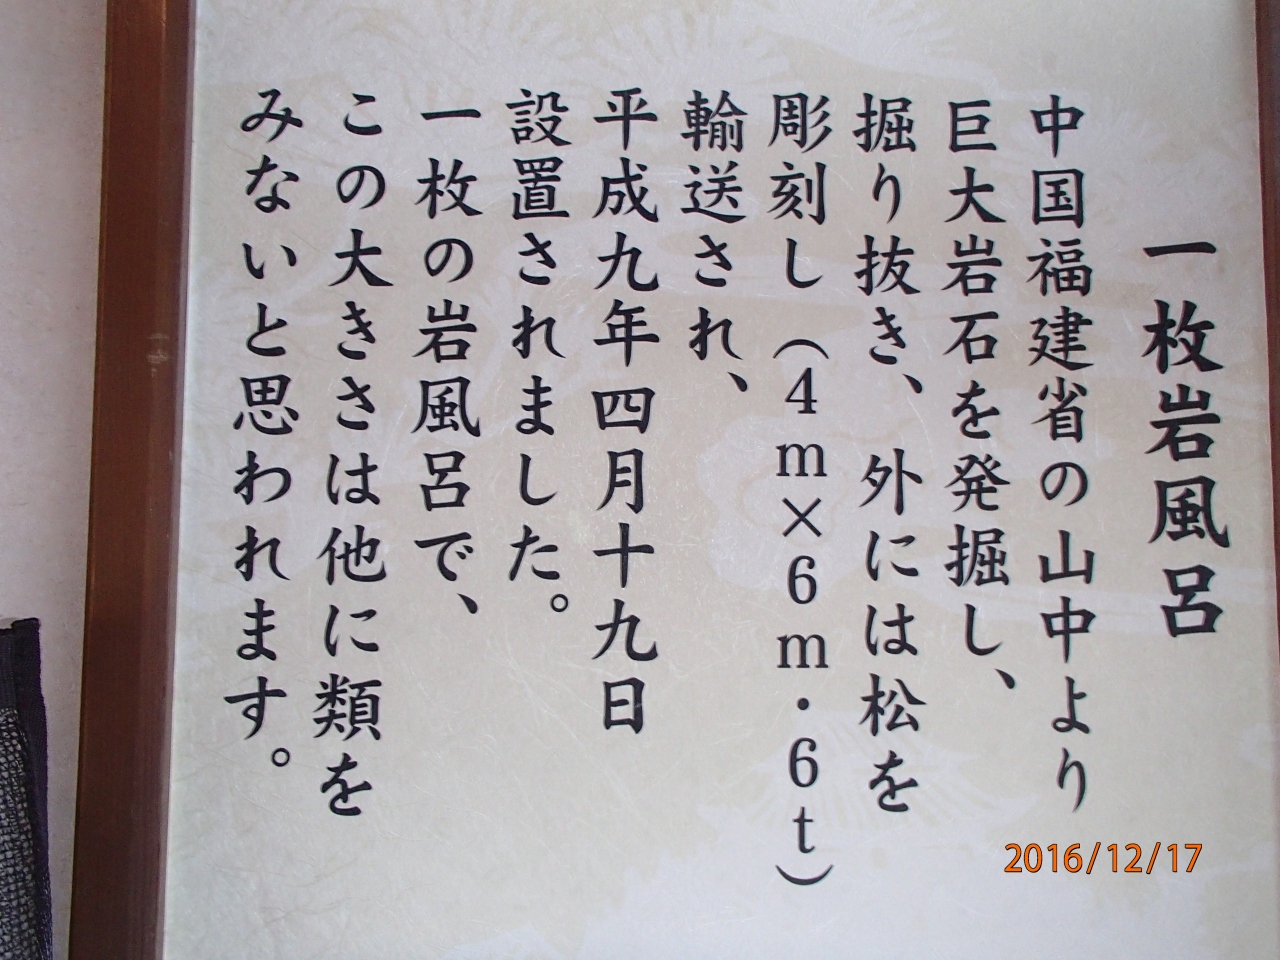 一枚岩風呂
中国福建省の山中より
巨大岩石を発掘し、
掘り抜き、外には松を
彫刻し（4m×6m・6t）
輸送され、
平成九年四月十九日
設置されました。
一枚の岩風呂で、
この大きさは他に類を
みないと思われます。
2016/12/17